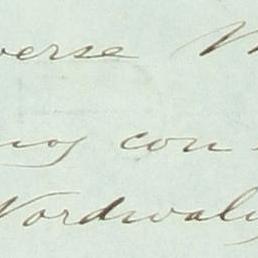 verse
nos con
Nordwaly